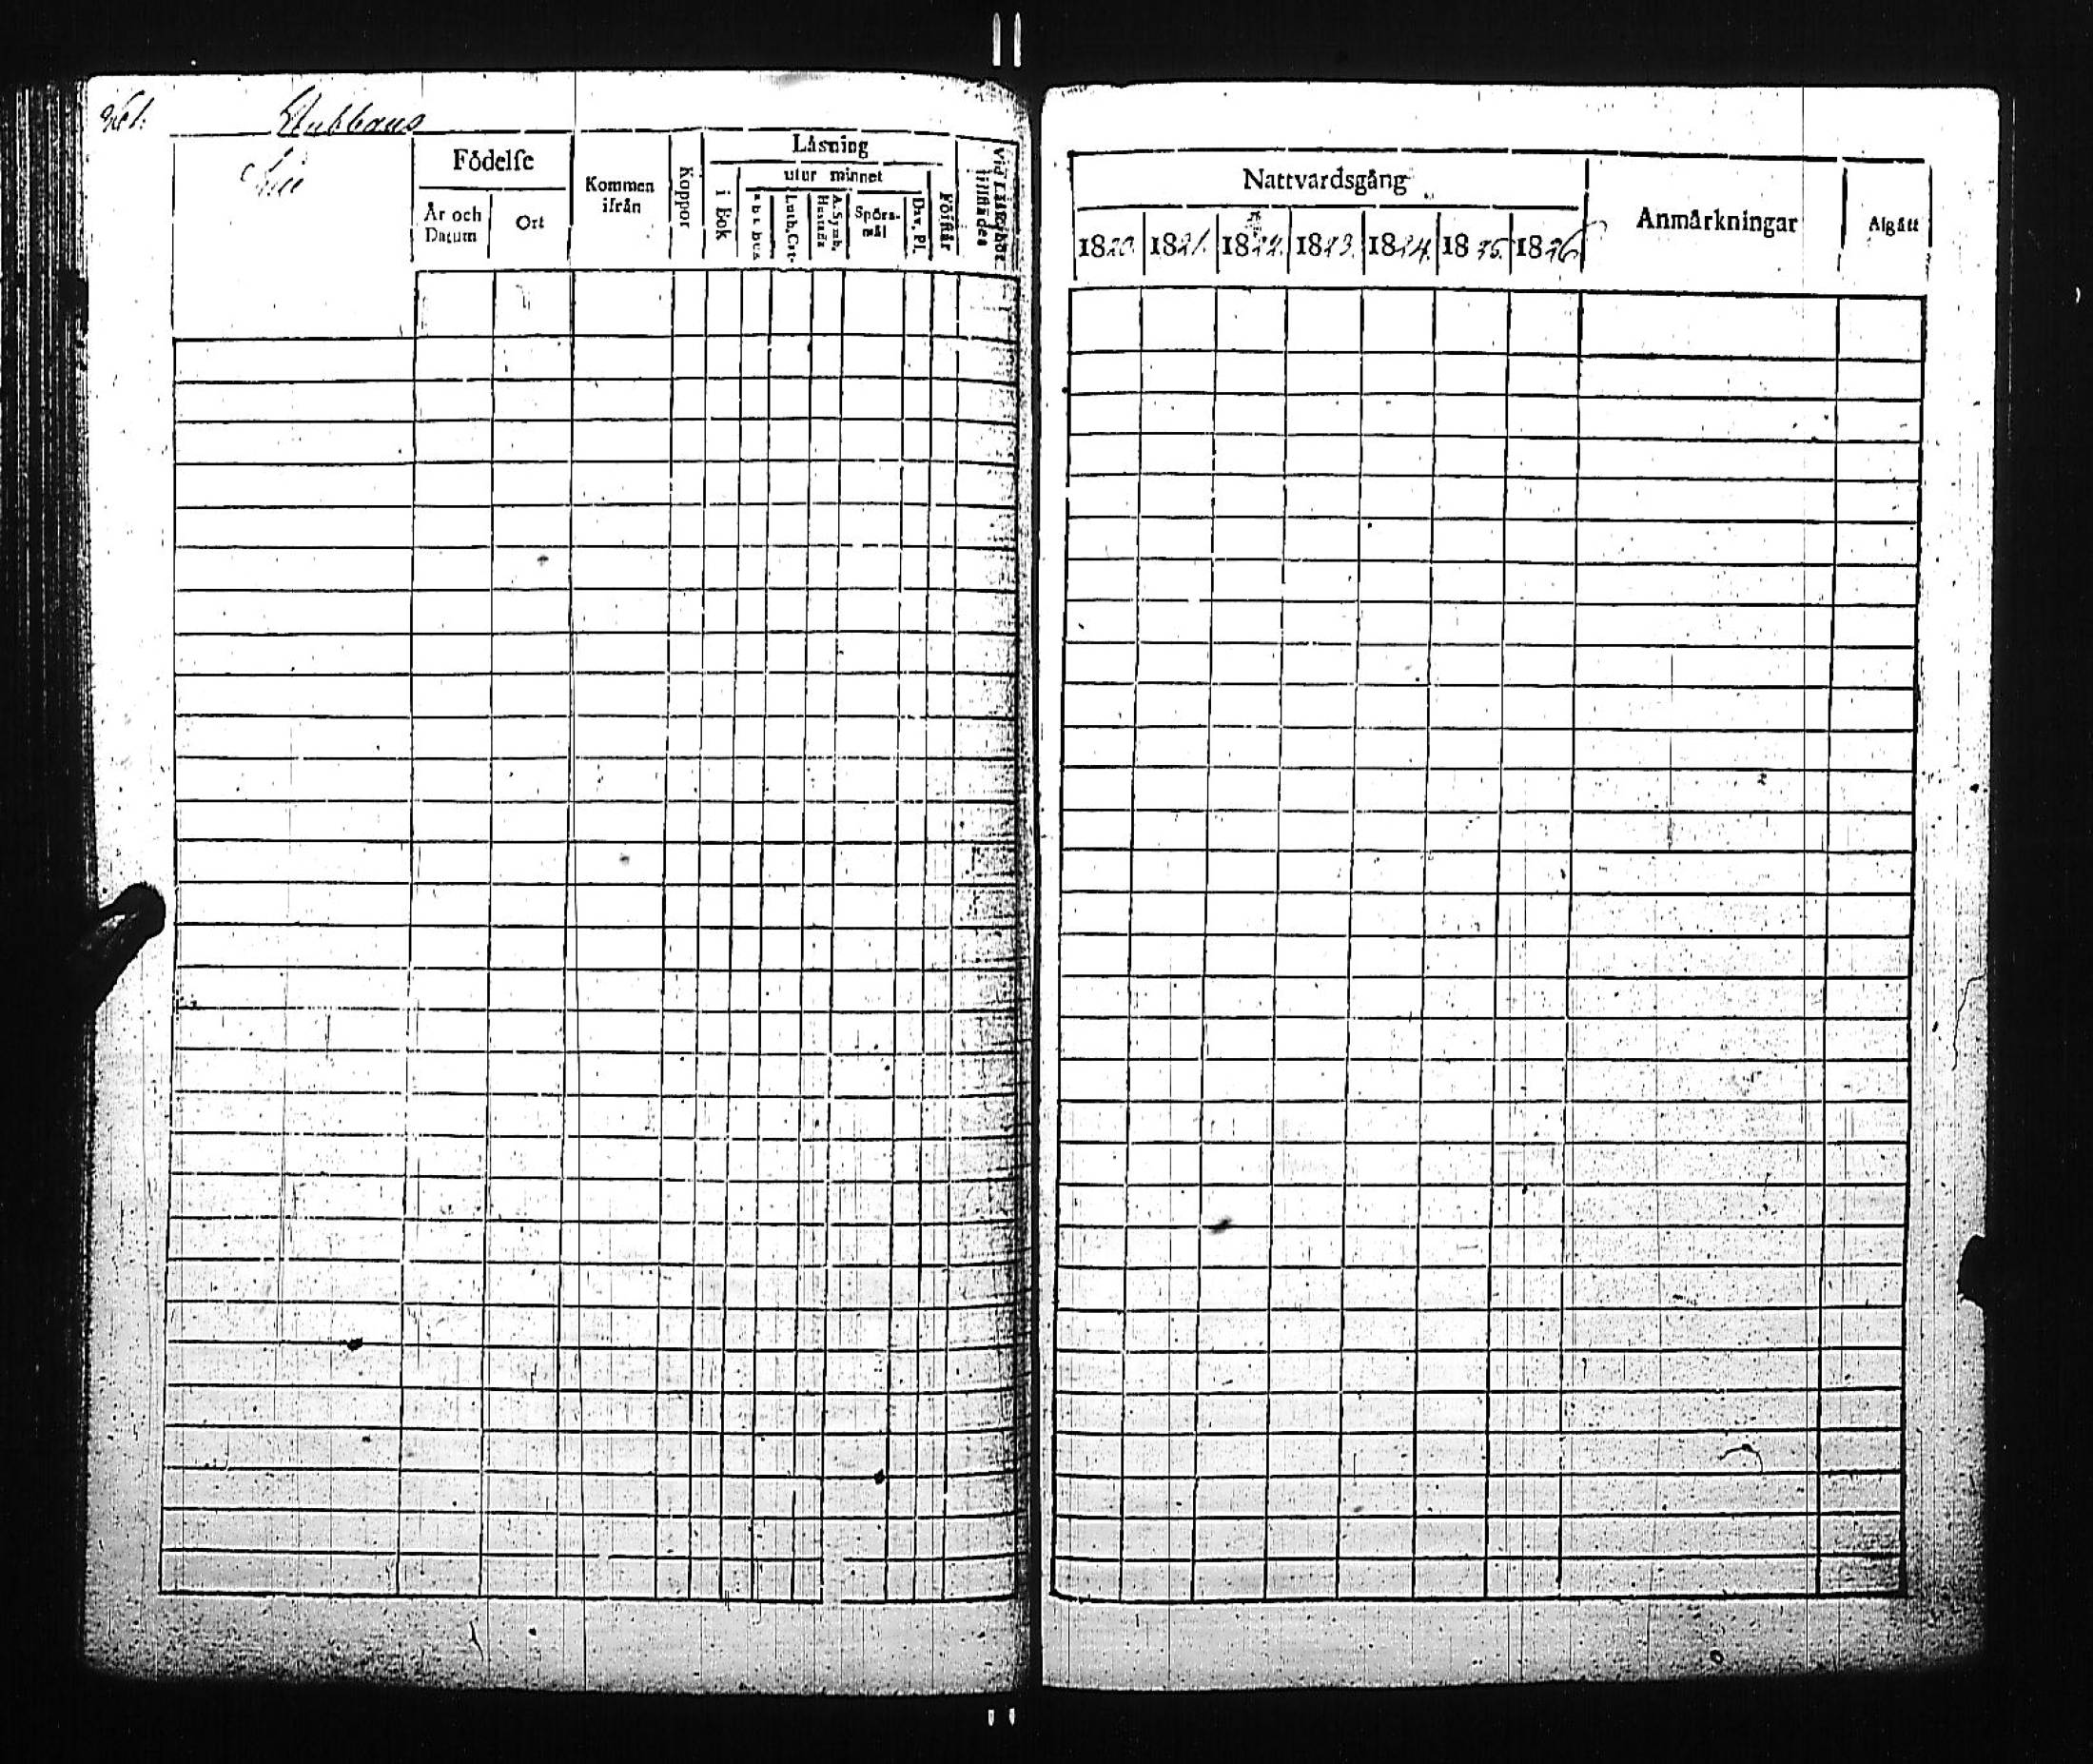 361.
Stubbans
Födelse
År och Datum
Ort
Kommen ifrån
Koppor
Läsning
i Bok
utur minnet
a b c bok
Luth. Cat.
A. Symb. Hustafla
Spörsmål
Dav. Pl.
Förstår
Vid Läsförhör tillstädes
Nattvardsgång
1820. 1821. 1822. 1823. 1824. 1825. 1826.
Anmärkningar
Afgått